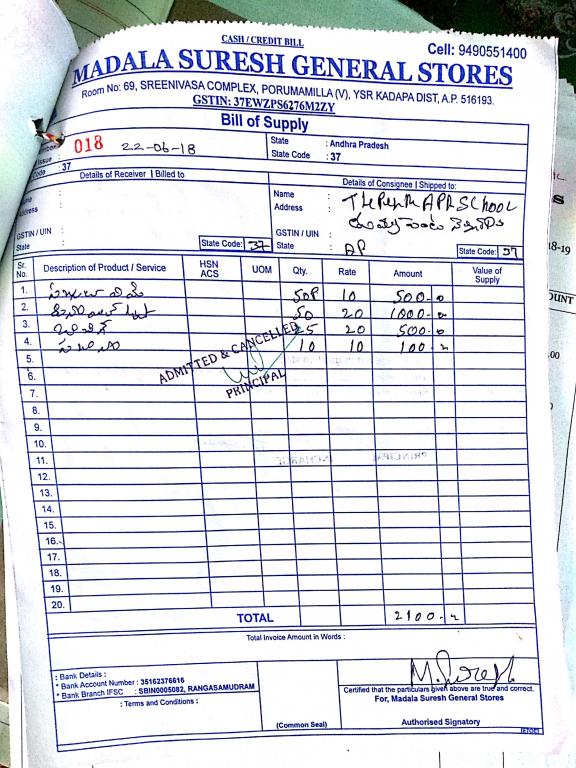 CASH / CREDIT BILL
Cell: 9490551400
MADALA SURESH GENERAL STORES
Room No: 69, SREENIVASA COMPLEX, PORUMAMILLA (V), YSR KADAPA DIST, A.P. 516193.
GSTIN: 37EWZPS6276M2ZY
Bill of Supply
018 22-06-18
Issue :
Code : 37
State : Andhra Pradesh
State Code : 37
Details of Receiver | Billed to
Name :
Address
GSTIN / UIN :
State :
State Code: 37
Details of Consignee | Shipped to:
Name : APR SCHOOL
Address :
GSTIN / UIN :
State : AP
State Code: 37
Sr. No. Description of Product / Service HSN ACS UOM Qty. Rate Amount Value of Supply
1. 50P 10 500-0
2. 50 20 1000-0
3. 25 20 500-0
4. 10 10 100-
5.
6.
7.
8.
9.
10.
11.
12.
13.
14.
15.
16.
17.
18.
19.
20.
ADMITTED & CANCELLED
PRINCIPAL
TOTAL 2100-
Total Invoice Amount in Words :
: Bank Details :
* Bank Account Number : 35162376616
* Bank Branch IFSC : SBIN0005082, RANGASAMUDRAM
: Terms and Conditions :
(Common Seal)
M. Suresh
Certified that the particulars given above are true and correct.
For, Madala Suresh General Stores
Authorised Signatory
18-19
OUNT
.00